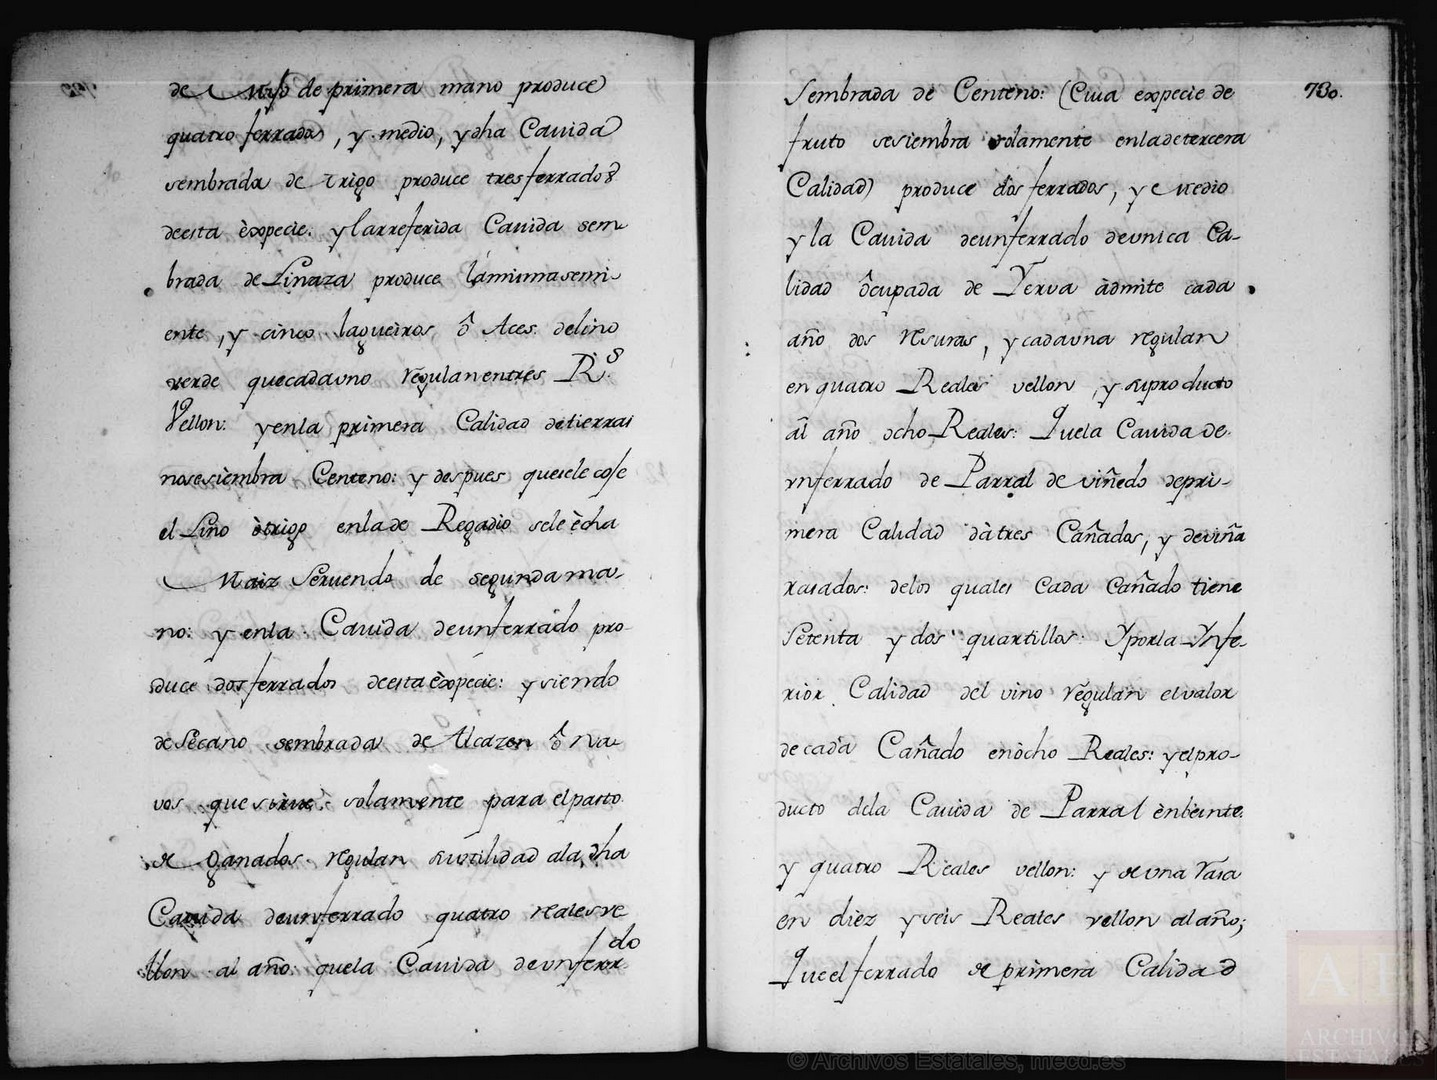 de Maiz de primera mano produce
quatro ferrados, y medio, y dha Cauida
sembrada de trigo produce tres ferrados
de esta èspecie. y la rreferida Cauida sem
brada de Linaza produce lámisma simi
ente, y cinco laqueiros ô Aces de lino
verde que cada vno rêgulan en tres R.s
Vellon: y en la primera Calidad de tierras
no se siembra Centeno: y despues que se le coje
el Lino ò trigo en la de Regadio se le ècha
Maiz Seruendo de segunda ma-
no: y en la Cauida de un ferrado pro-
duce dos ferrados de esta èspécie: y siendo
de Sècano sembrada de Alcazen ô Na-
vos que sirue solamente para el pasto
de Ganados regulan su vtilidad a la dha
Cauida de un ferrado quatro reales ve
llon al año: que la Cauida de vn ferrdo
Sembrada de Centeno: (Cuia especie de
fruto se siembra solamente en la de tercera
Calidad) produce dos ferrados, y Medio
y la Cauida de un ferrado de vnica Ca-
lidad ôcupada de Yerva àdmite cada
año dos rêsuras, y cada vna regulan
en quatro Reales vellon, y su producto
al año ocho Reales: Que la Cauida de
vn ferrado de Parral de viñedo de pri-
mera Calidad dà tres Cañados, y de viña
rasa dos: de los quales cada Cañado tiene
Setenta y dos quartillos: Y por la Ynfe-
rior Calidad del vino regulan el valor
de cada Cañado en òcho Reales: y el pro-
ducto de la Cauida de Parral ènbeinte
y quatro Reales vellon: y de vna rasa
en diez y seis Reales vellon al año;
Que el ferrado de primera Calidad
730.
© Archivos Estatales, mecd.es
AE
ARCHIVOS
ESTATALES